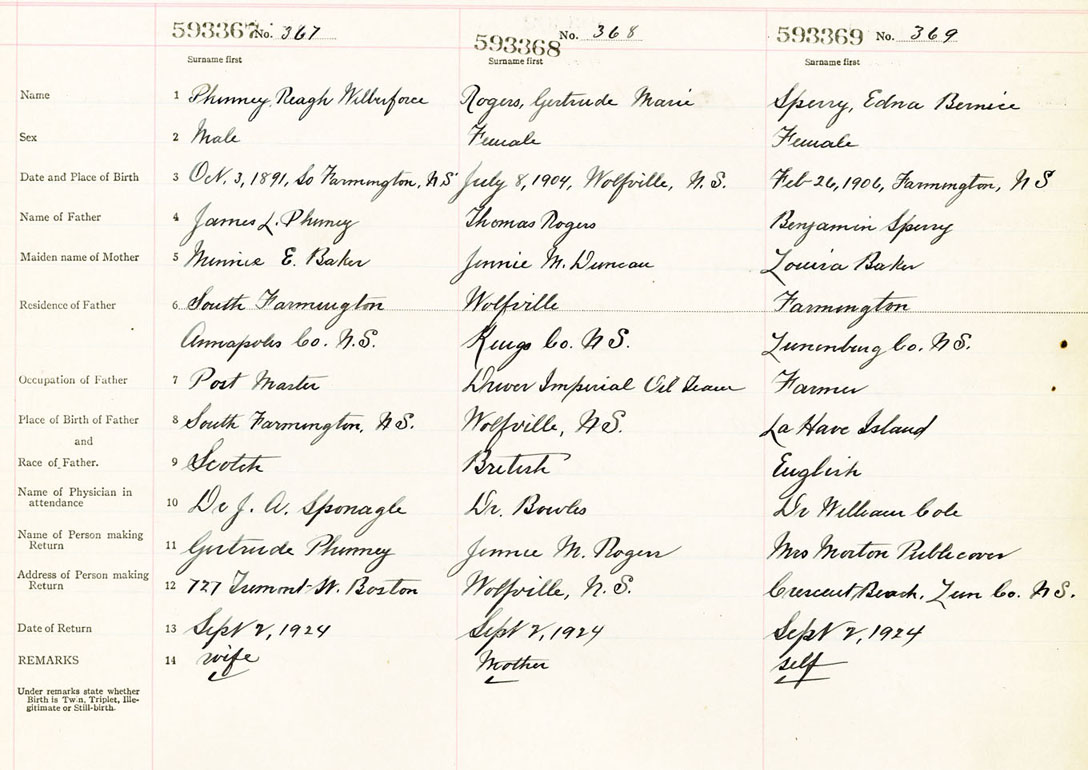 593367 No. 367 593368 No. 368 593369 No. 369
Surname first Surname first Surname first
Name 1 Phinney, Reagh Wilberforce Rogers, Gertrude Marie Sperry, Edna Bernice
Sex 2 Male Female Female
Date and Place of Birth 3 Oct. 3, 1891, So Farmington, N.S. July 8, 1904, Wolfville, N.S. Feb-26, 1906, Farmington, N S
Name of Father 4 James L. Phinney Thomas Rogers Benjamin Sperry
Maiden name of Mother 5 Minnie E. Baker Jennie M. Duncan Louisa Baker
Residence of Father 6 South Farmington Wolfville Farmington
Annapolis Co. N.S. Kings Co. N S. Lunenburg Co. N S.
Occupation of Father 7 Post Master Driver Imperial Oil Team Farmer
Place of Birth of Father 8 South Farmington, N S. Wolfville, N S. La Have Island
and
Race of Father. 9 Scotch British English
Name of Physician in
attendance 10 Dr J. A. Sponagle Dr. Bowles Dr William Cole
Name of Person making
Return 11 Gertrude Phinney Jennie M. Rogers Mrs Morton Publicover
Address of Person making
Return 12 727 Tremont St. Boston Wolfville, N.S. Crescent Beach, Lun Co. N S.
Date of Return 13 Sept 2, 1924 Sept 2, 1924 Sept 2, 1924
REMARKS 14 wife Mother self
Under remarks state whether
Birth is Twin, Triplet, Ille-
gitimate or Still-birth.